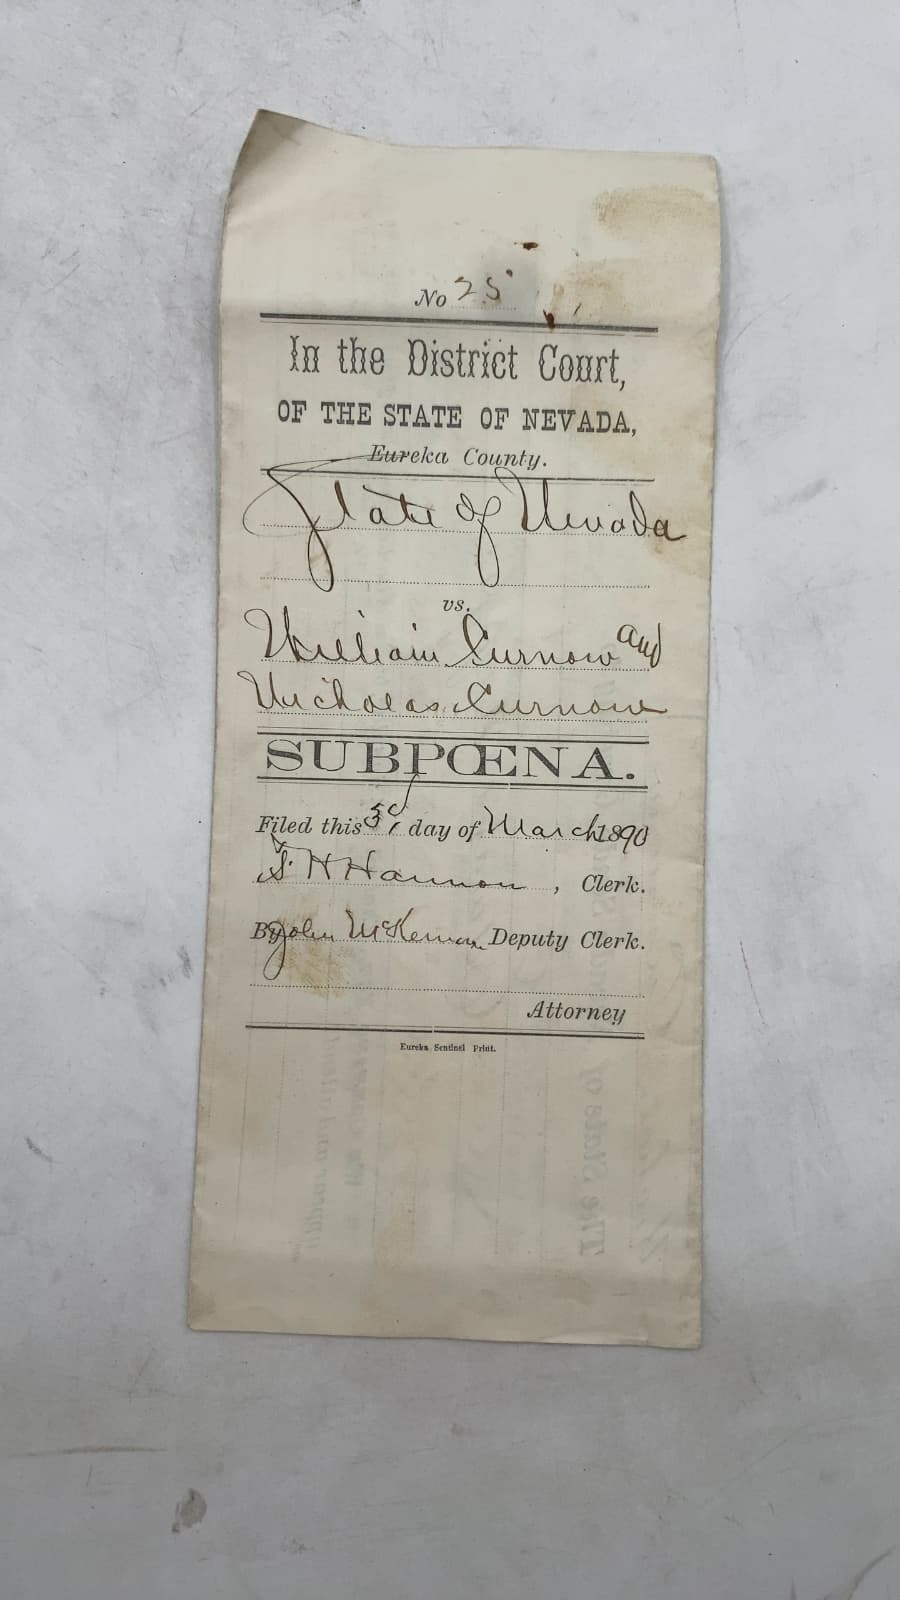 No 25
In the District Court,
OF THE STATE OF NEVADA,
Eureka County.
State of Nevada
vs.
William Curnow and
Nicholas Curnow
SUBPŒNA.
Filed this 5th day of March 1890
H Hannon, Clerk.
By John McKernan Deputy Clerk.
Attorney
Eureka Sentinel Print.
The State of